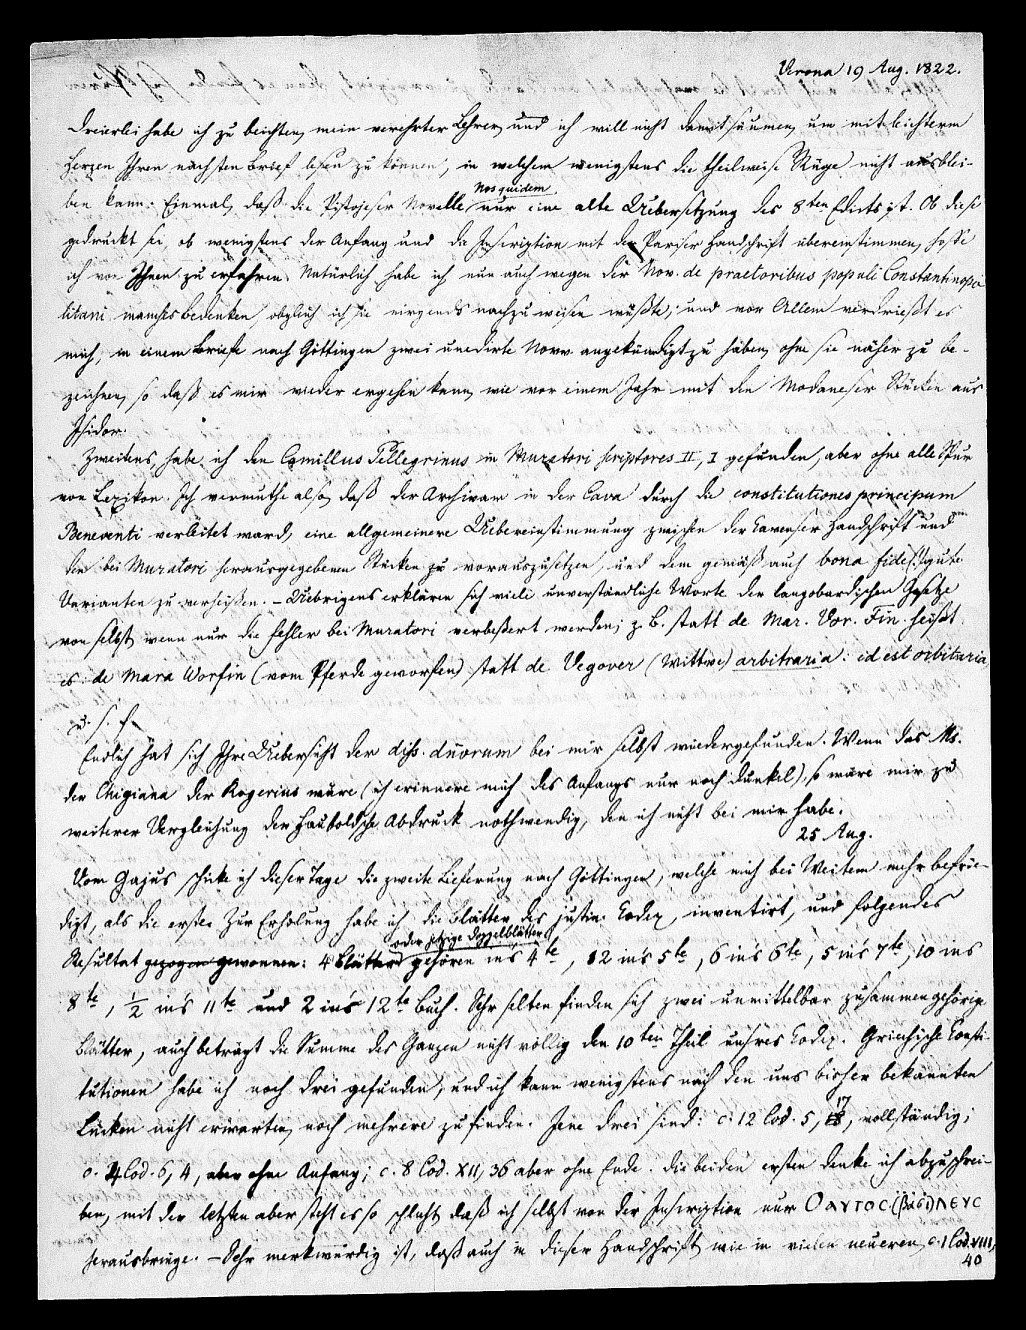 Verona 19 Aug. 1822.
Dreierlei habe ich zu beichten, mein verehrter Lehrer, und ich will nicht damit säumen, um mit leichterm
Herzen Ihren nächsten Brief lesen zu können, in welchem wenigstens die theilweise Rüge nicht ausblei-
ben kann. Einmal, daß die Pistojeser Novelle Nos quidem nur eine alte Uebersetzung des 8ten Edicts ist. Ob diese
gedruckt sei, ob wenigstens der Anfang und die Inscription mit der Pariser Handschrift übereinstimmen, hoffe
ich von Ihnen zu erfahren. Natürlich habe ich nun auch wegen der Nov. de praetoribus populi Constantinopo-
litani manches Bedenken, obgleich ich sie nirgends nachzuweisen wüßte; und vor Allem verdrießt es
mich, in einem Briefe nach Göttingen zwei unedirte Novv angekündigt zu haben, ohne sie näher zu be-
zeichnen, so daß es mir wieder ergehen kann, wie vor einem Jahr mit den Modaneser Stücken aus
Isidor.
Zweitens habe ich den Camillus Pellegrinus in Muratori scriptores II, I gefunden, aber ohne alle Spur
von Lexikon. Ich vermuthe also, daß der Archivar in der Cava durch die constitutiones principum
Beneventi verleitet ward, eine allgemeinere Uebereinstimmung zwischen der Cavenser Handschrift und
den bei Muratori herausgegebenen Stücken zu vorauszusetzen, und dem gemäß auch bona fide gute
Varianten zu verheißen. – Uebrigens erklären sich viele unverständliche Worte der langobardischen Gesetze
von selbst, wenn nur die Fehler bei Muratori verbeßert werden; z. B. statt de Mar. Vor. Fin. heißt
es: de Mara Worfin (vom Pferde geworfen) statt de Vegover (Wittwe) arbitraria: id est orbitaria
u. s. f.
Endlich hat sich Ihre Uebersicht der diss. dnorum bei mir selbst wiedergefunden. Wenn das Ms.
der Chigiana der Rogerius wäre (ich erinnere mich des Anfangs nur noch dunkel), so wäre mir zu
weiterer Vergleichung der Hauboldsche Abdruck nothwendig, den ich nicht bei mir habe.
25 Aug.
Vom Gajus schicke ich dieser Tage die zweite Lieferung nach Göttingen, welche mich bei Weitem mehr befrie-
digt, als die erste. Zur Erholung habe ich die Blätter des justin. Codex inventirt, und folgendes
Resultat gezogen gewonnen: 4 Blätter oder jetzige Doppelblätter gehören ins 4te, 12 ins 5te, 6 ins 6te, 5 ins 7te, 10 ins
8te, ½ ins 11te und 2 ins 12te Buch. Sehr selten finden sich zwei unmittelbar zusammengehörige
Blätter, auch beträgt die Summe des Ganzen nicht völlig den 10ten Theil unsres Codex. Griechische Consti-
tutionen habe ich noch drei gefunden, und ich kann wenigstens nach den uns bisher bekannten
Lücken nicht erwarten, noch mehrere zu finden. Jene drei sind: c. 12 Cod. 5, 17, vollständig;
c. 4 Cod. 6, 4, aber ohne Anfang; c. 8 Cod. XII, 36 aber ohne Ende. Die beiden ersten denke ich abzuschrei-
ben, mit der letzten aber steht es so schlecht, daß ich selbst von der Inscription nur Ο ΑΥΤΟC (βασι)ΛΕΥC
herausbringe. – Sehr merkwürdig ist, daß auch in dieser Handschrift, wie in vielen neueren, c. 1 Cod. VIII,
40